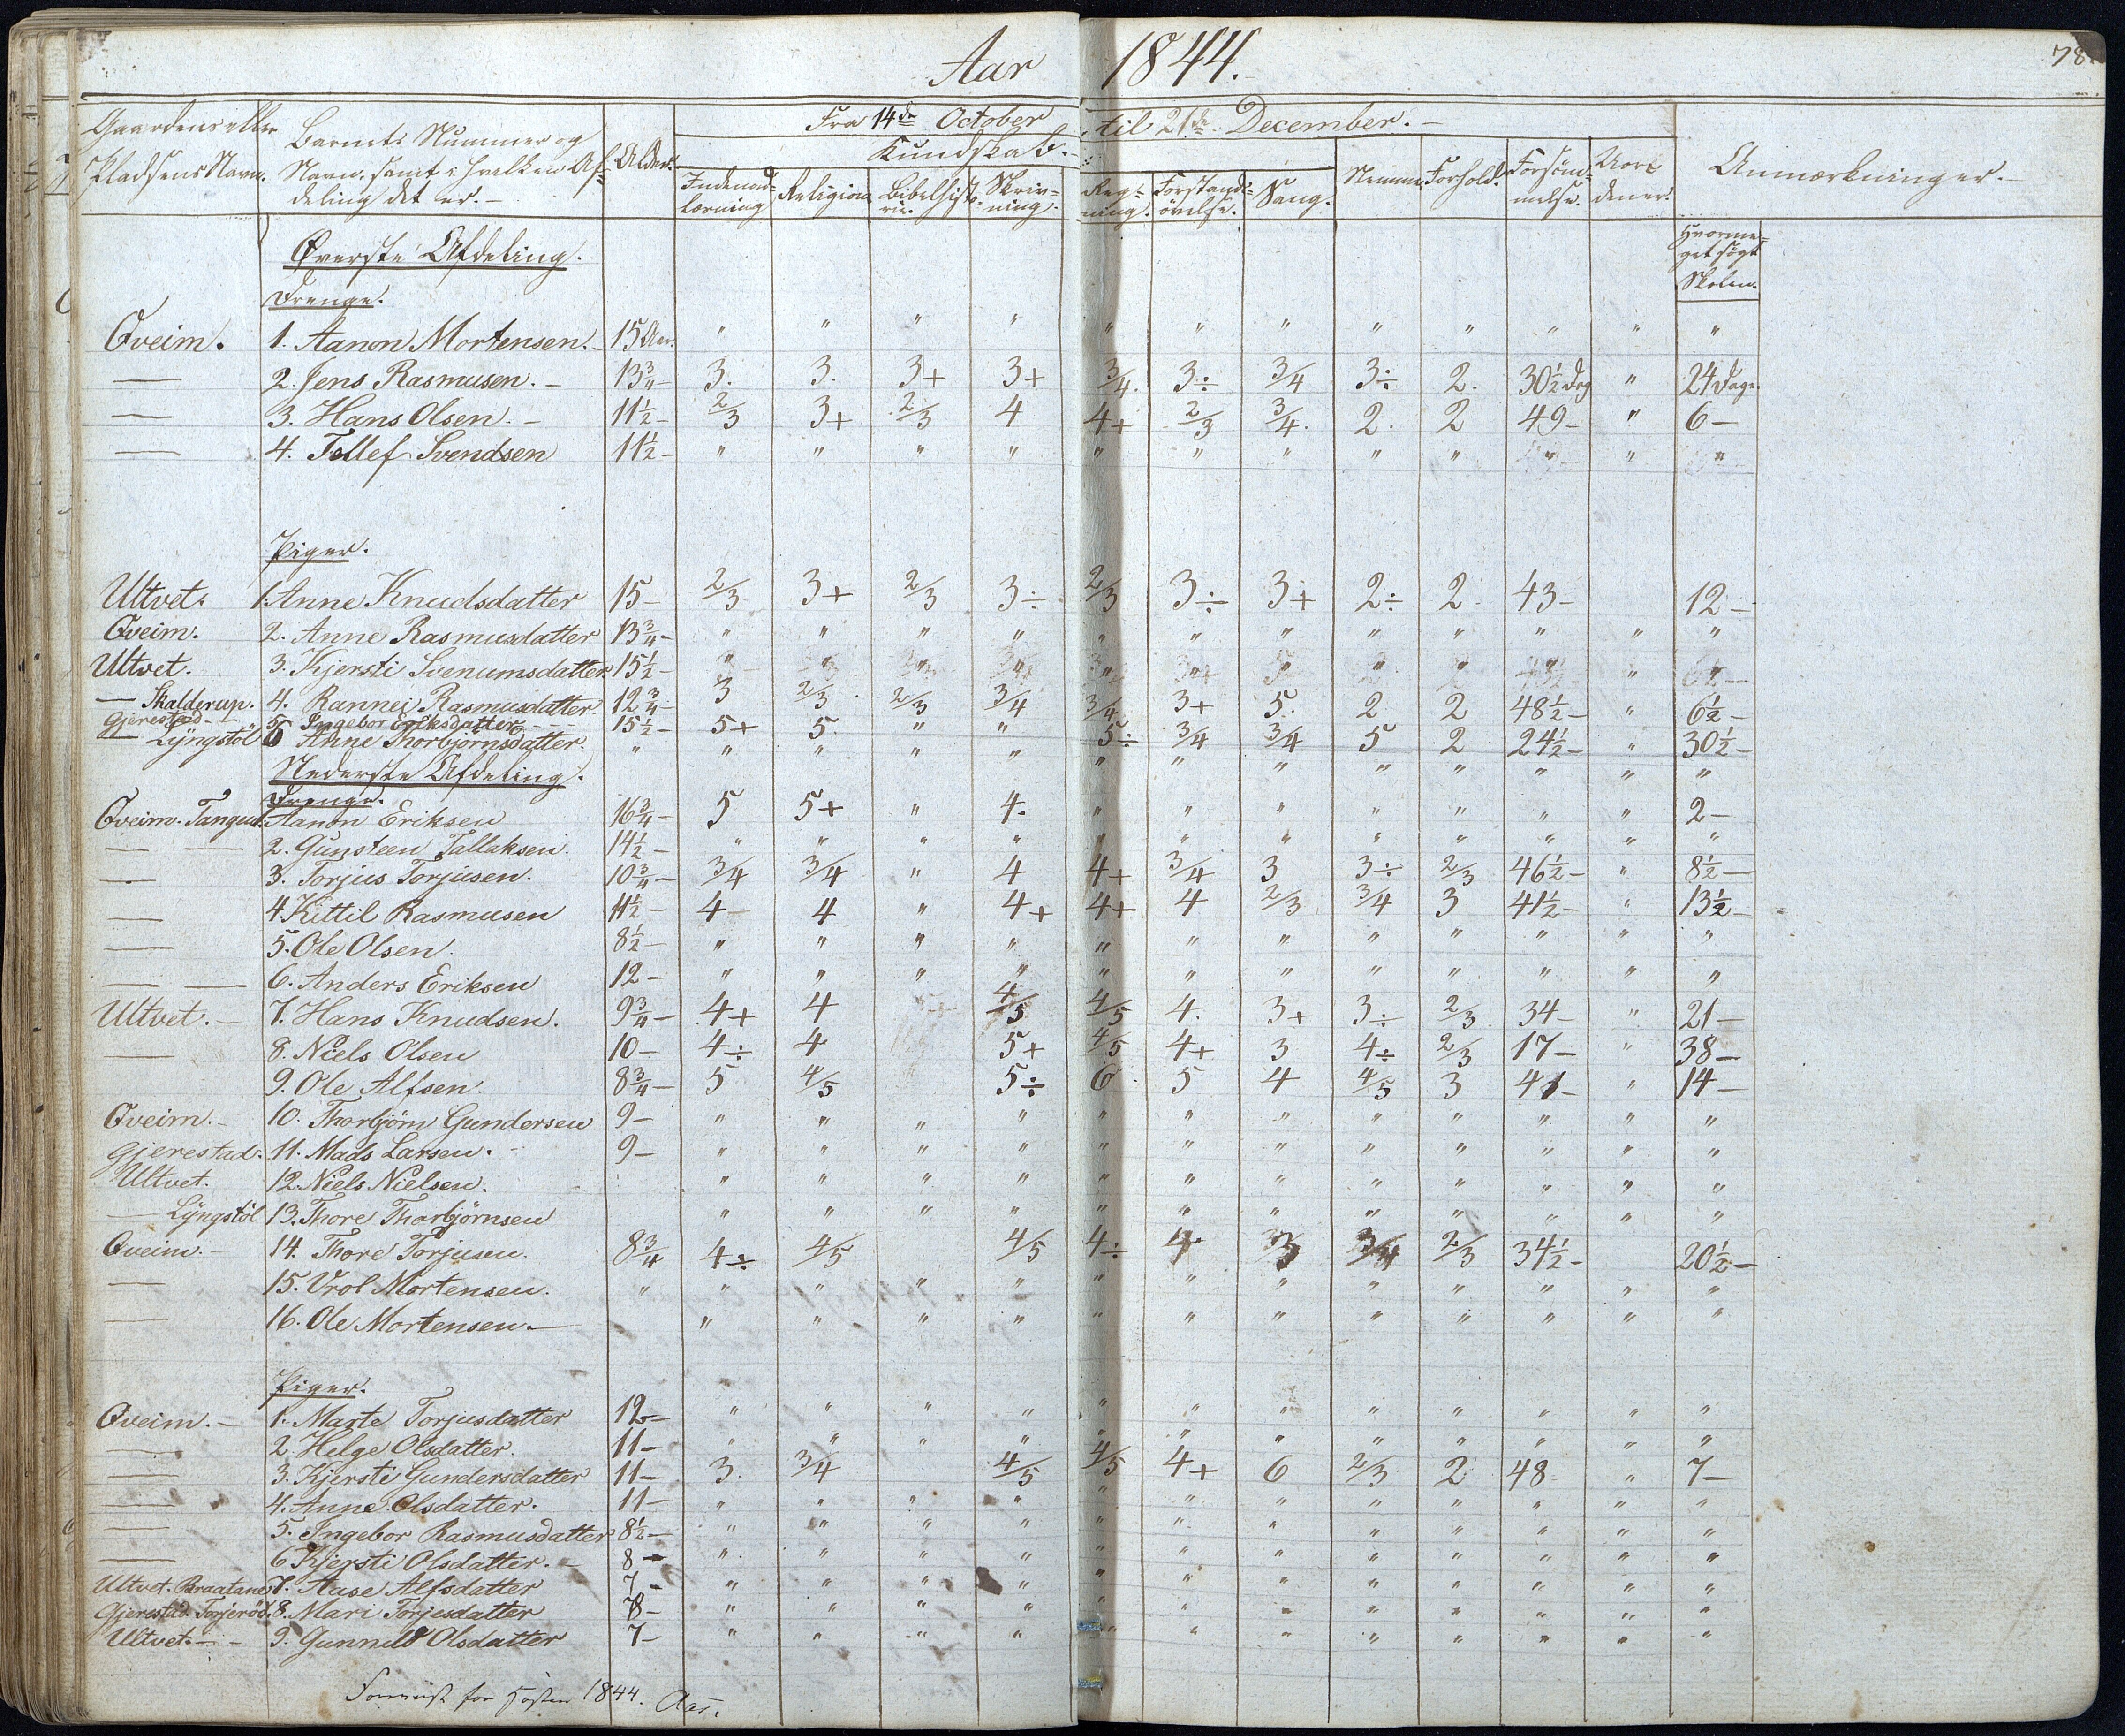 Aar 1844.
78.
Gaardens eller Pladsens Navn.
Barnets Nummer og Navn, samt i hvilken Afdeling det er. –
Alder.
Fra 14de October til 21de December. –
Kundskab. –
Indenadlæsning
Religion
Bibelhistorie.
Skrivning.
Regning.
Forstandsövelse.
Sang.
Nemme
Forhold.
Forsömmelse.
Uordener.
Anmærkninger. –
Hvormeget sögt Skolen.
Øverste Afdeling.
Drenge.
Qveim. 1. Aanon Mortensen. – 15 Aar. " " " " " " " " " " " "
— 2. Jens Rasmusen. – 13 3/4 – 3. 3. 3+ 3+ 3/4. 3÷ 3/4 3÷ 2. 30 1/2 Dag " 24 Dage.
— 3. Hans Olsen. – 11 1/2 – 2/3 3+ 2/3 4 4+ 2/3 3/4. 2. 2 49 – " 6 –
— 4. Tellef Svendsen 11 1/2 – " " " " " " " " " " " "
Piger.
Ultvet. 1. Anne Knudsdatter 15 – 2/3 3+ 2/3 3÷ 2/3 3÷ 3+ 2÷ 2 43 – 12 –
Qveim. 2. Anne Rasmusdatter 13 3/4 – " " " " " " " " " " " "
Ultvet. 3. Kjersti Svenumsdatter 15 1/2 – " " " " " " " " " " " "
— Skalderup. 4. Rannei Rasmusdatter 12 3/4 – 3 2/3 2/3 3/4 3/4 3+ 5. 2 2 48 1/2 – " 6 1/2 –
Gjerestad – 5. Ingebor Eriksdatter 15 1/2 – 5+ 5. " " 5÷ 3/4 3/4 5 2 24 1/2 – " 30 1/2 –
— Lÿngstöl 6 Anne Thorbjörnsdatter. " " " " " " " " " " " " "
Nederste Afdeling.
Drenge.
Qveim. Tangen. 1. Aanon Eriksen 16 3/4 – 5 5+ " 4. " " " " " " " 2 –
— — 2. Gunsteen Tallaksen. 14 1/2 – " " " " " " " " " " " "
— 3. Torjus Torjusen. 10 3/4 – 3/4 3/4 " 4 4+ 3/4 3 3÷ 2/3 46 1/2 – " 8 1/2 –
— 4. Kittil Rasmusen 11 1/2 – 4 – 4 " 4+ 4+ 4 2/3 3/4 3 41 1/2 – " 13 1/2 –
— 5. Ole Olsen. 8 1/2 – " " " " " " " " " " " "
— — 6. Anders Eriksen 12 – " " " " " " " " " " " "
Ultvet. – 7. Hans Knudsen. 9 3/4 – 4+ 4 4/5 4/5 4. 3+ 3÷ 2/3 34 – " 21 –
— 8. Niels Olsen 10 – 4÷ 4 5+ 4/5 4+ 3 4÷ 2/3 17 – " 38 –
9. Ole Alfsen. 8 3/4 – 5 4/5 5÷ 6. 5 4 4/5 3 41 – " 14 –
Qveim. – 10. Thorbjörn Gundersen 9 – " " " " " " " " " " " "
Gjerestad. 11. Mads Larsen. – 9 – " " " " " " " " " " " "
Ultvet. 12. Niels Nielsen. " " " " " " " " " " " "
— Lÿngstöl 13. Thore Thorbjörnsen " " " " " " " " " " " "
Qveim. – 14. Thore Torjusen. 8 3/4 4÷ 4/5 4/5 4÷ 4. 3 3/4 2/3 34 1/2 – 20 1/2 –
— 15. Vrol Mortensen. " " " " " " " " " " " " "
— 16. Ole Mortensen. – " " " " " " " " " " " "
Piger.
Qveim. – 1. Marte Torjusdatter 12 – " " " " " " " " " " " "
— 2. Helge Olsdatter. 11 – " " " " " " " " " " " "
— 3. Kjersti Gundersdatter 11 – 3. 3/4 4/5 4/5 4+ 6 2/3 2 48 " 7 –
— 4. Anne Olsdatter. 11 – " " " " " " " " " " " "
— 5. Ingebor Rasmusdatter 8 1/2 – " " " " " " " " " " " "
— 6 Kjersti Olsdatter. – 8 – " " " " " " " " " " " "
Ultvet. Braatanes 7. Aase Alfsdatter 7 – " " " " " " " " " " " "
Gjerestad. Torjeröd. 8. Mari Torjesdatter 8 – " " " " " " " " " " " "
Ultvet. – – 9. Gunnild Olsdatter 7 – " " " " " " " " " " " "
for Hösten 1844. Aas.